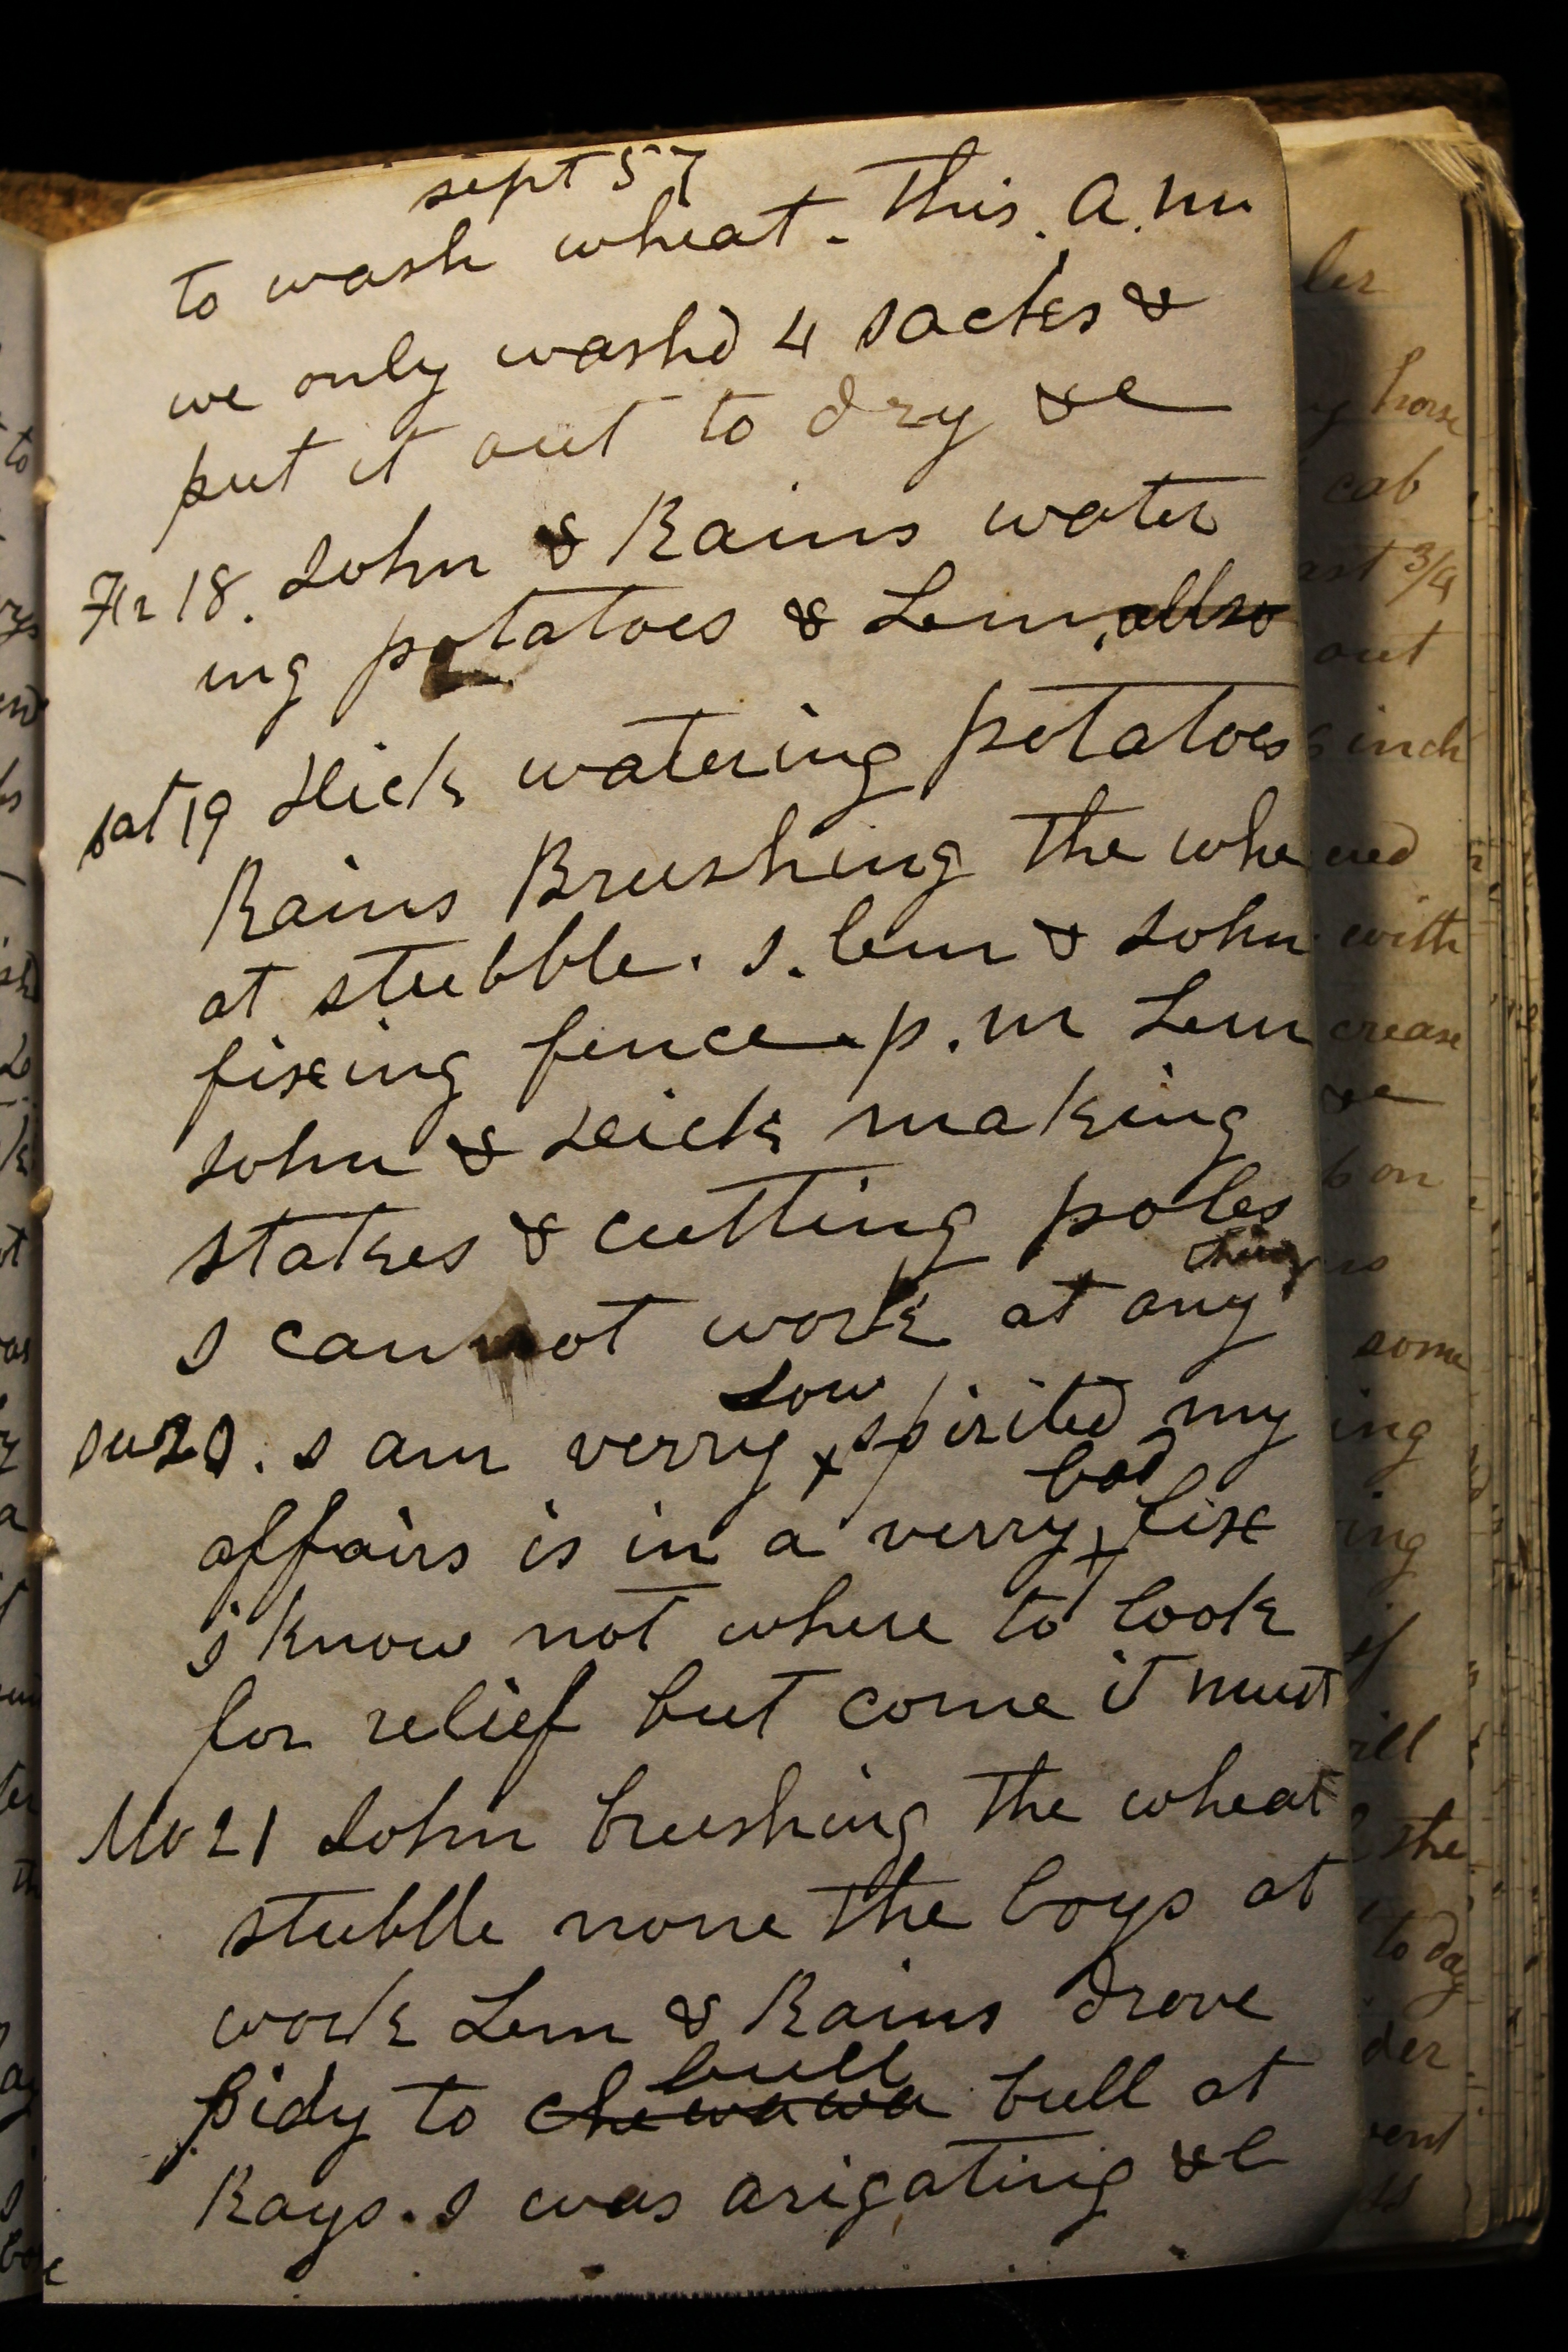 sept 57
to wash wheat. This. A.m
we only washd 4 sackes &
put it out to dry &c
Fr 18. John & Rains water
ing potatoes & Lem, allso
sat 19 Dick watering potatoes
Rains Brushing the whe
at stubble. I. lem & John
fixing fence. p.m Lem
John & Dick making
stakes & cutting poles
I cannot work at any thing
su 20. I am verry low spirited my
affairs is in a verry bad fix
i know not where to look
for relief but come it must
Mo 21 John brushing the wheat
stubble none the boys at
work Lem & Rains drove
Pidy to chewawa bull bull at
Rays. I was arigating &c
ler
horse
cab
3/4
out
inch
ued
with
crease
&c
on
some
ing
ing
if
ill
the
to day
der